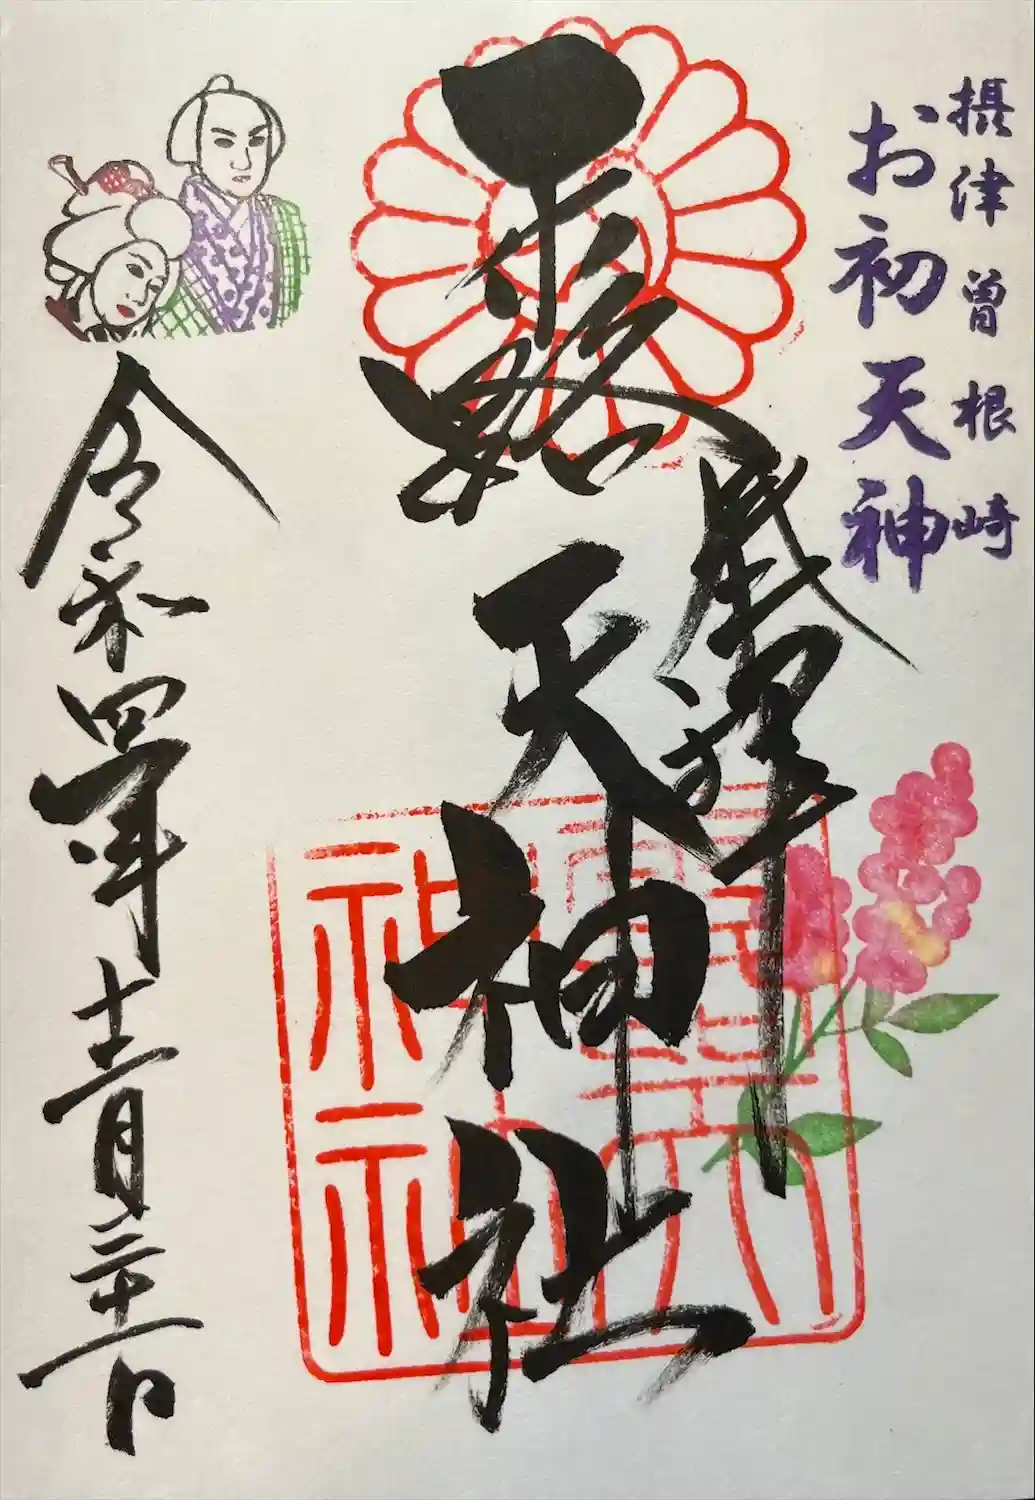 摂津曽根崎
お初天神
奉拝
露天神社
令和四年十二月三十一日
露天
神社